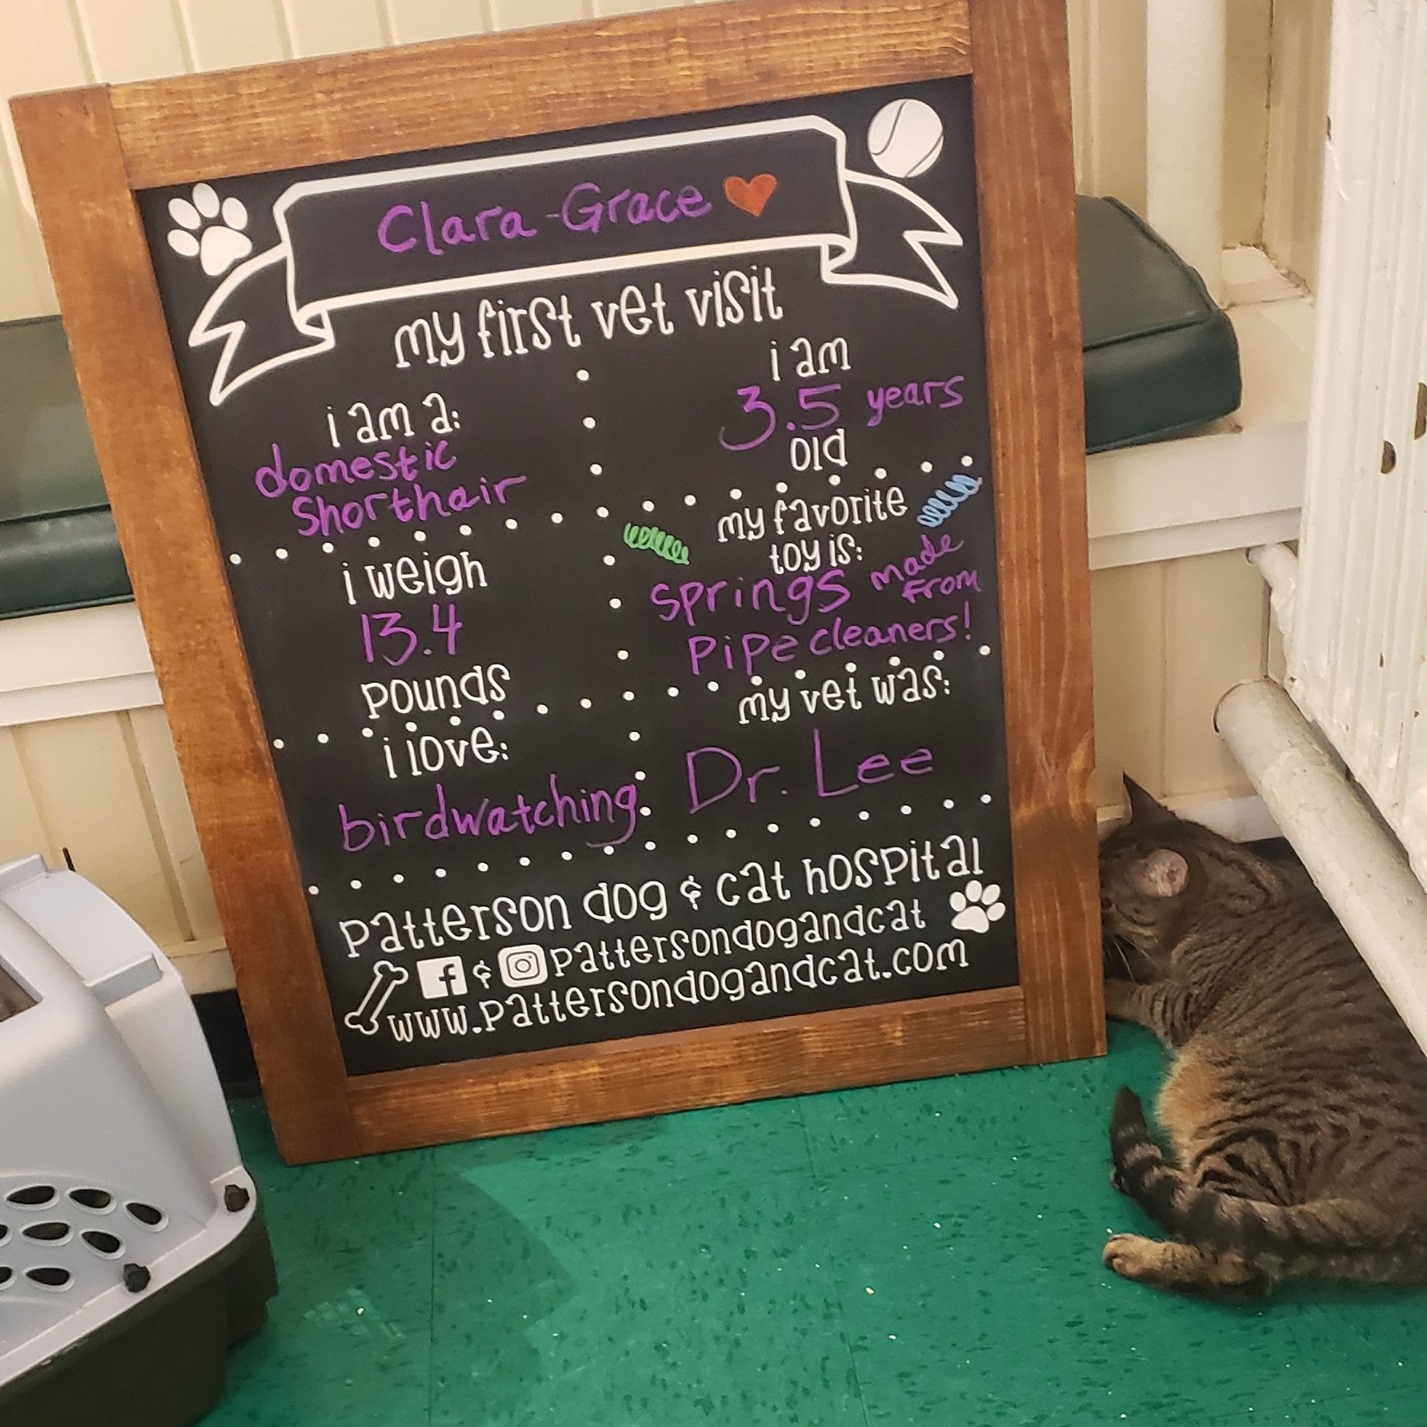 Clara-Grace
my first vet visit
i am a:
domestic
Shorthair
i am
3.5 years
old
i weigh
13.4
pounds
my favorite
toy is:
Springs made
from
Pipecleaners!
i love:
birdwatching
my vet was:
Dr. Lee
Patterson dog & cat hospital
f & pattersondogandcat
www.pattersondogandcat.com